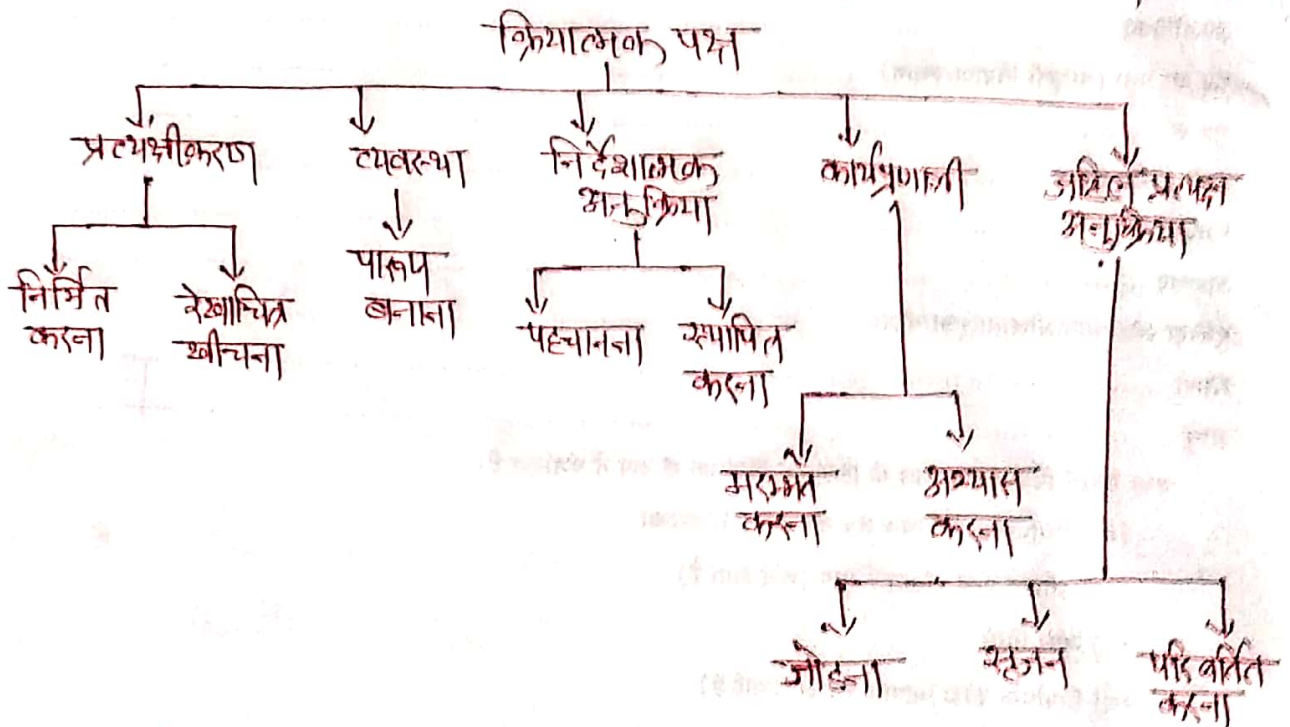 क्रियात्मक पक्ष
प्रत्यक्षीकरण
व्यवस्था
निर्देशात्मक
अनुक्रिया
कार्यप्रणाली
जटिल प्रत्यक्ष
अनुक्रिया
निर्मित
करना
रेखाचित्र
खीन्चना
पारूप
बनाना
पहचानना
स्थापित
करना
मरम्मत
करना
अभ्यास
करना
जोडना
सृजन
परिवर्तित
करना